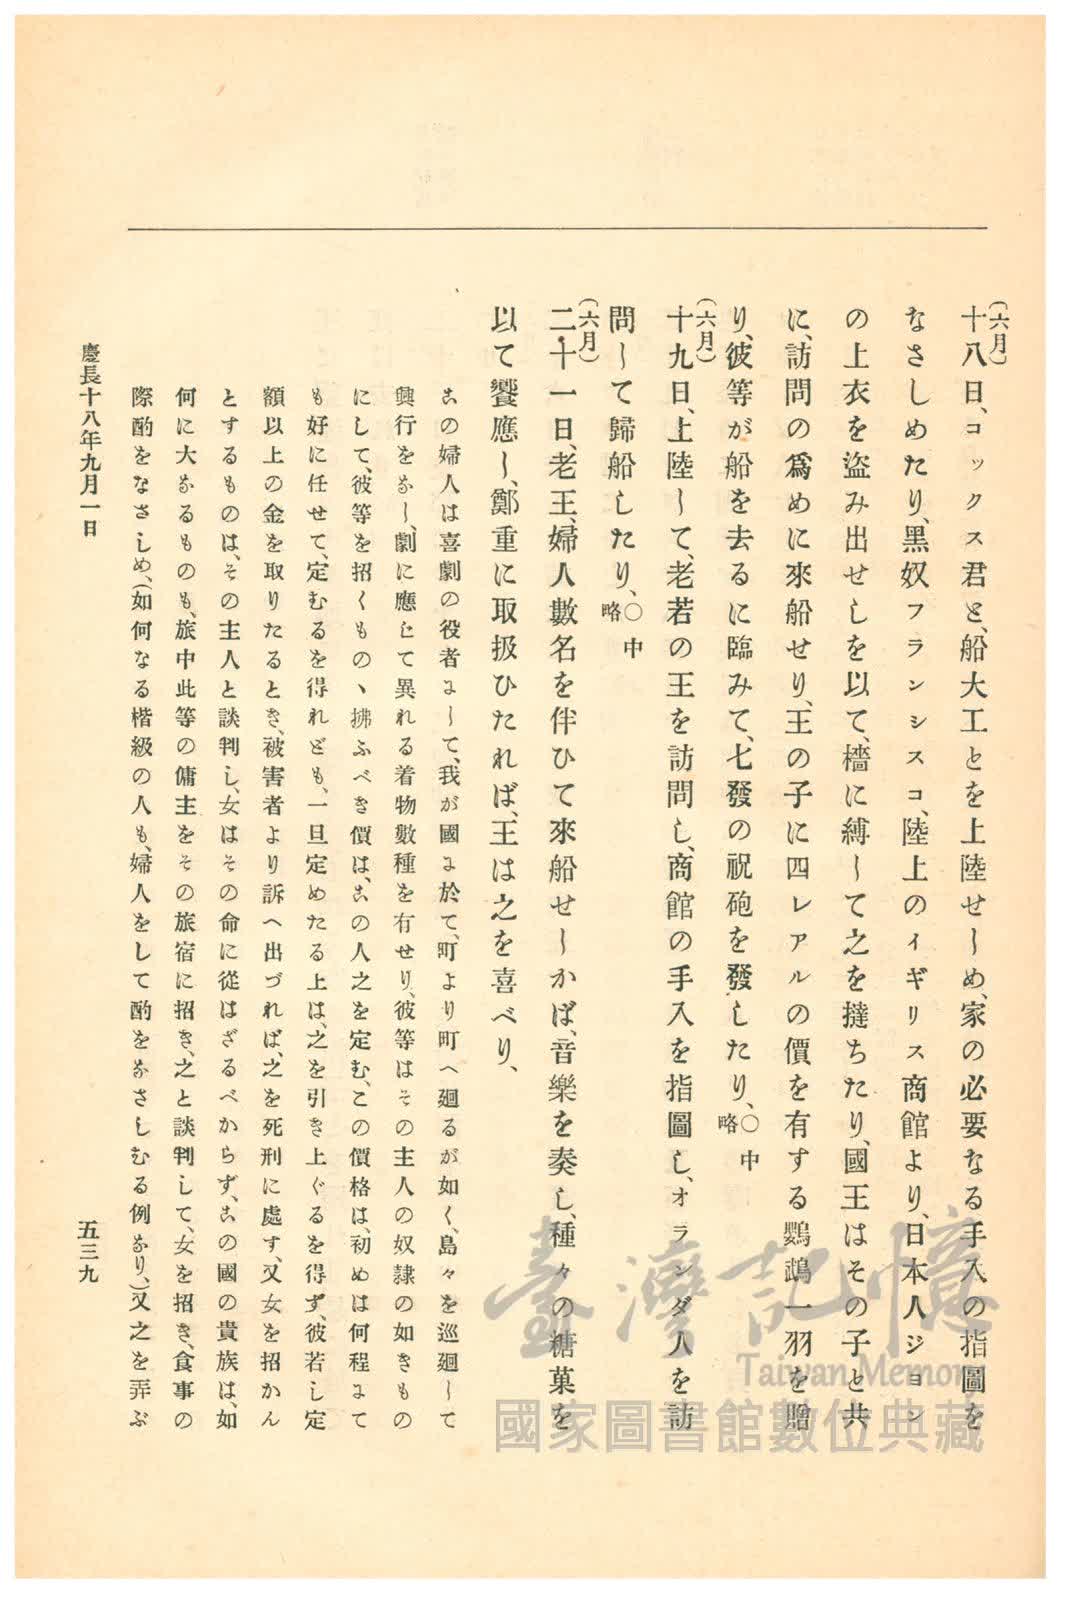 (六月)
十八日、コックス君と、船大工とを上陸せしめ、家の必要なる手入の指圖を
なさしめたり、黑奴フランシスコ、陸上のイギリス商館より、日本人ジョン
の上衣を盜み出せしを以て、檣に縛して之を撻ちたり、國王はその子と共
に、訪問の爲めに來船せり、王の子に四レアルの價を有する鸚鵡一羽を贈
り、彼等が船を去るに臨みて、七發の祝砲を發したり、〇中略
(六月)
十九日、上陸して、老若の王を訪問し、商館の手入を指圖し、オランダ人を訪
問して歸船したり、〇中略
(六月)
二十一日、老王、婦人數名を伴ひて來船せしかば、音樂を奏し、種々の糖菓を
以て饗應し、鄭重に取扱ひたれば、王は之を喜べり、
この婦人は喜劇の役者にして、我が國に於て、町より町へ廻るが如く、島々を巡廻して
興行をなし、劇に應じて異れる着物數種を有せり、彼等はその主人の奴隷の如きもの
にして、彼等を招くものゝ拂ふべき價は、この人之を定む、この價格は、初めは何程にて
も好に任せて、定むるを得れども、一旦定めたる上は、之を引き上ぐるを得ず、彼若し定
額以上の金を取りたるとき、被害者より訴へ出づれば、之を死刑に處す、又女を招かん
とするものは、その主人と談判し、女はその命に從はざるべからず、この國の貴族は、如
何に大なるものも、旅中此等の傭主をその旅宿に招き、之と談判して、女を招き、食事の
際酌をなさしめ、(如何なる楷級の人も、婦人をして酌をなさしむる例なり、)又之を弄ぶ
慶長十八年九月一日
五三九
臺灣記憶
Taiwan Memory
國家圖書館數位典藏